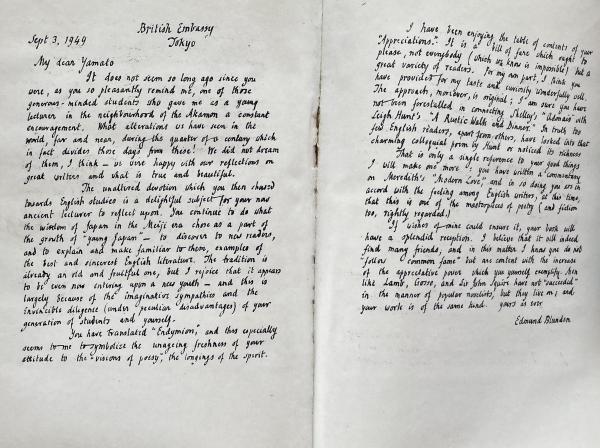 British Embassy
Tokyo
Sept 3, 1949
My dear Yamato
It does not seem so long ago since you
were, as you so pleasantly remind me, one of those
generous-minded students who gave me as a young
lecturer in the neighbourhood of the Akamon a constant
encouragement. What alterations we have seen in the
world, far and near, during the quarter of a century which
in fact divides those days from these! We did not dream
of them, I think – we were happy with our reflections on
great writers and what is true and beautiful.
The unaltered devotion which you then showed
towards English studies is a delightful subject for your now
ancient lecturer to reflect upon. You continue to do what
the wisdom of Japan in the Meiji era chose as a part of
the growth of "young Japan" – to discover to new readers,
and to explain and make familiar to them, examples of
the best and sincerest English literature. The tradition is
already an old and fruitful one, but I rejoice that it appears
to be even now entering upon a new youth – and this is
largely because of the imaginative sympathies and the
invincible diligence (under peculiar disadvantages) of your
generation of students and yourself.
You have translated "Endymion," and this especially
seems to me to symbolize the unageing freshness of your
attitude to the "visions of poesy", the longings of the spirit.
I have been enjoying the table of contents of your
"Appreciations." It is a bill of fare which ought to
please, not everybody (which we know is impossible) but a
great variety of readers. For my own part, I think you
have provided for my taste and curiosity wonderfully well.
The approach, moreover, is original; I am sure you have
not been forestalled in connecting Shelley's "Adonais" with
Leigh Hunt's "A Rustic Walk and Dinner." In truth too
few English readers, apart from others, have looked into that
charming colloquial poem by Hunt or noticed its richness
That is only a single reference to your good things
I will make one more: you have written a commentary
on Meredith's "Modern Love," and in so doing you are in
accord with the feeling among English writers, at this time,
that this is one of the masterpieces of poetry (and fiction
too, rightly regarded.)
If wishes of mine could ensure it, your book will
have a splendid reception. I believe that it will indeed
find many friends, and in this matter I know you do not
follow "common fame" but are content with the increase
of the appreciative power which you yourself exemplify. Men
like Lamb, Gosse, and Sir John Squire have not "succeeded"
in the manner of popular novelists, but they live on; and
your work is of the same kind. yours as ever
Edmund Blunden